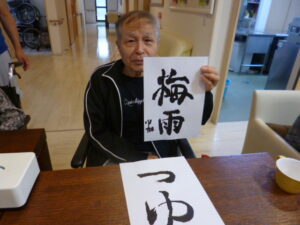 梅雨
つゆ